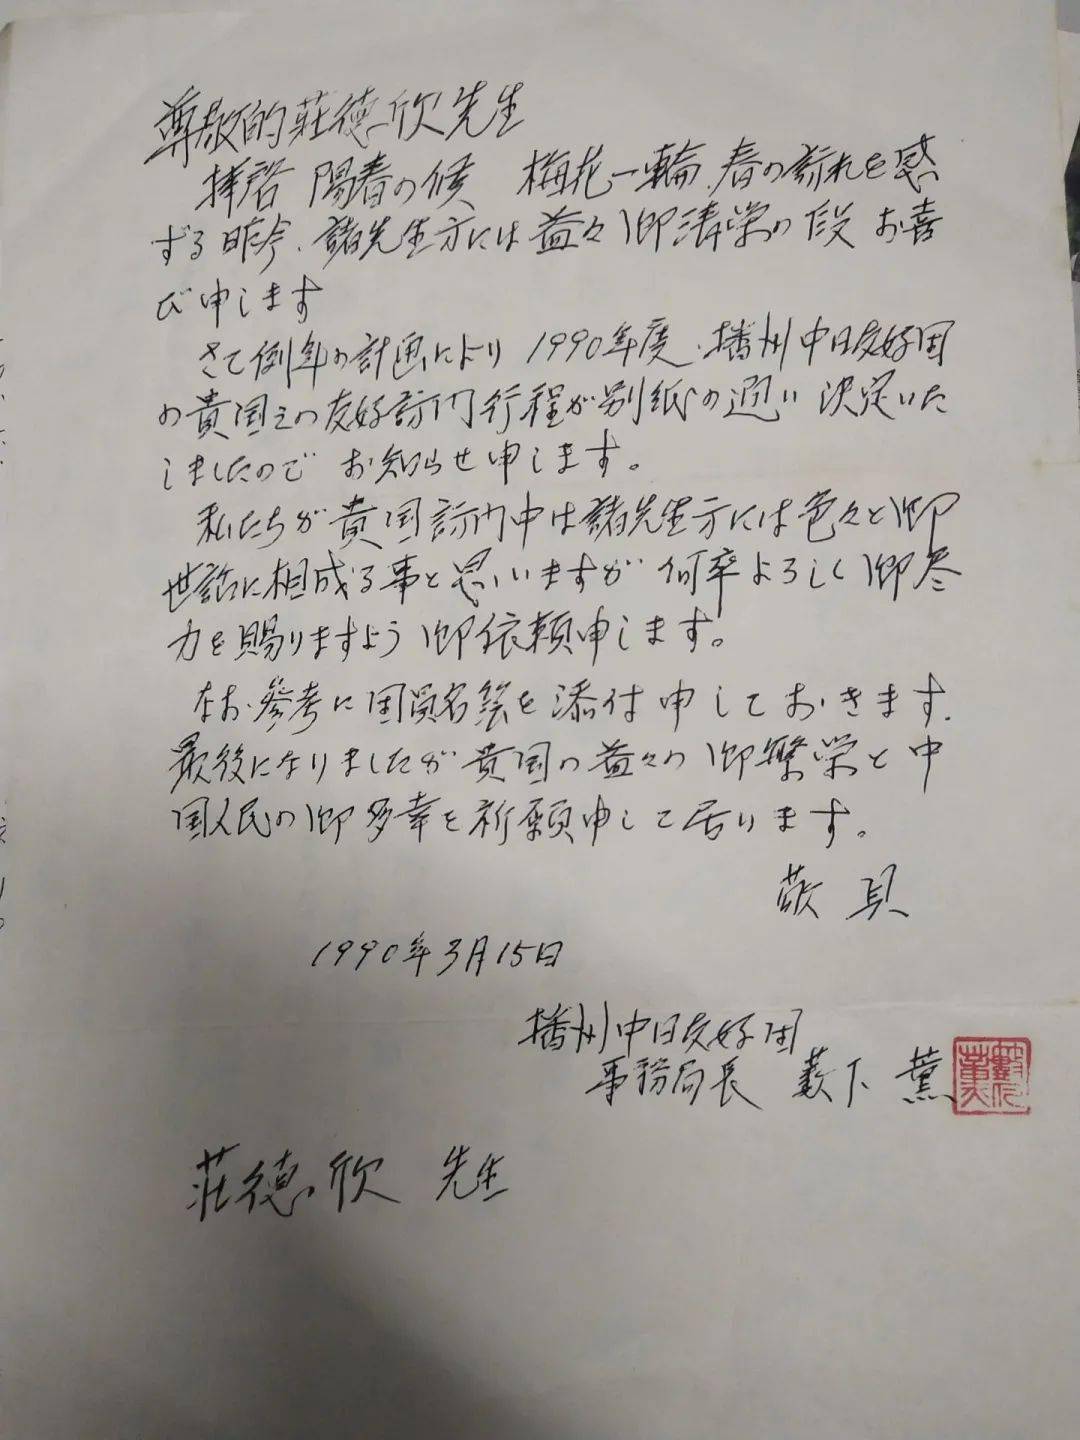 尊敬的莊德欣先生
拝啓 陽春の候 梅花一輪、春の訪れを感
ずる昨今、諸先生方には益々御清栄の段 お喜
び申します
さて例年の計画により 1990年度、播州中日友好団
の貴国えの友好訪問行程が別紙の通り 決定いた
しましたので お知らせ申します。
私たちが貴国訪問中は諸先生方には色々と御
世話に相成る事と思いますが 何卒よろしく御尽
力を賜りますよう 御依頼申します。
なお、参考に団員名簿を添付申しておきます。
最後になりましたが貴国の益々の御繁栄と中
国人民の御多幸を祈願申して居ります。
敬具
1990年3月15日
播州中日友好団
事務局長 薮下 薫
莊德欣 先生